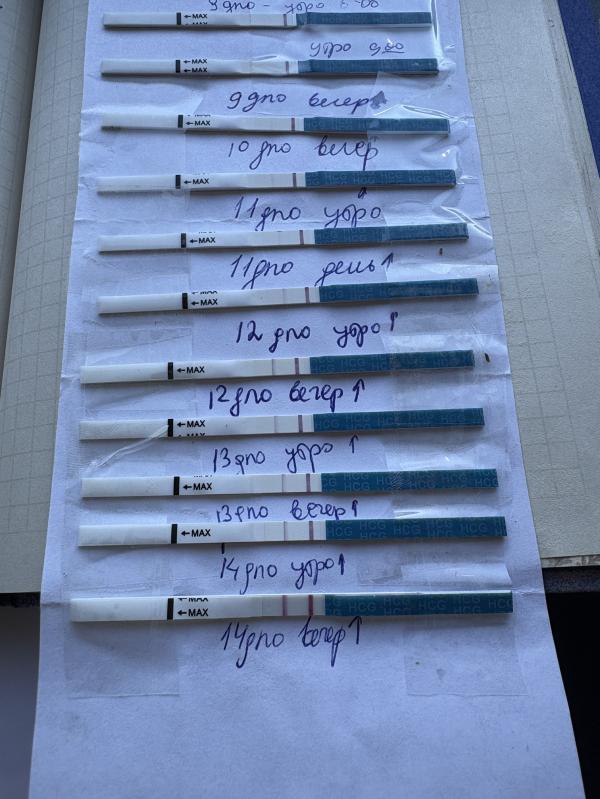 9дпо - утро 6-00
← MAX
утро 9 00
← MAX
← MAX
9дпо вечер↑
← MAX
10 дпо вечер
← MAX
HCG HCG
11дпо утро
← MAX
HCG HCG
11дпо день↑
← MAX
← MAX
12 дпо утро↑
← MAX
12дпо вечер↑
← MAX
13дпо утро↑
← MAX
HCG HCG HCG HCG
13дпо вечер↑
← MAX
HCG HCG HCG HCG
14дпо утро↑
← MAX
← MAX
HCG HCG HCG HCG
14дпо вечер↑